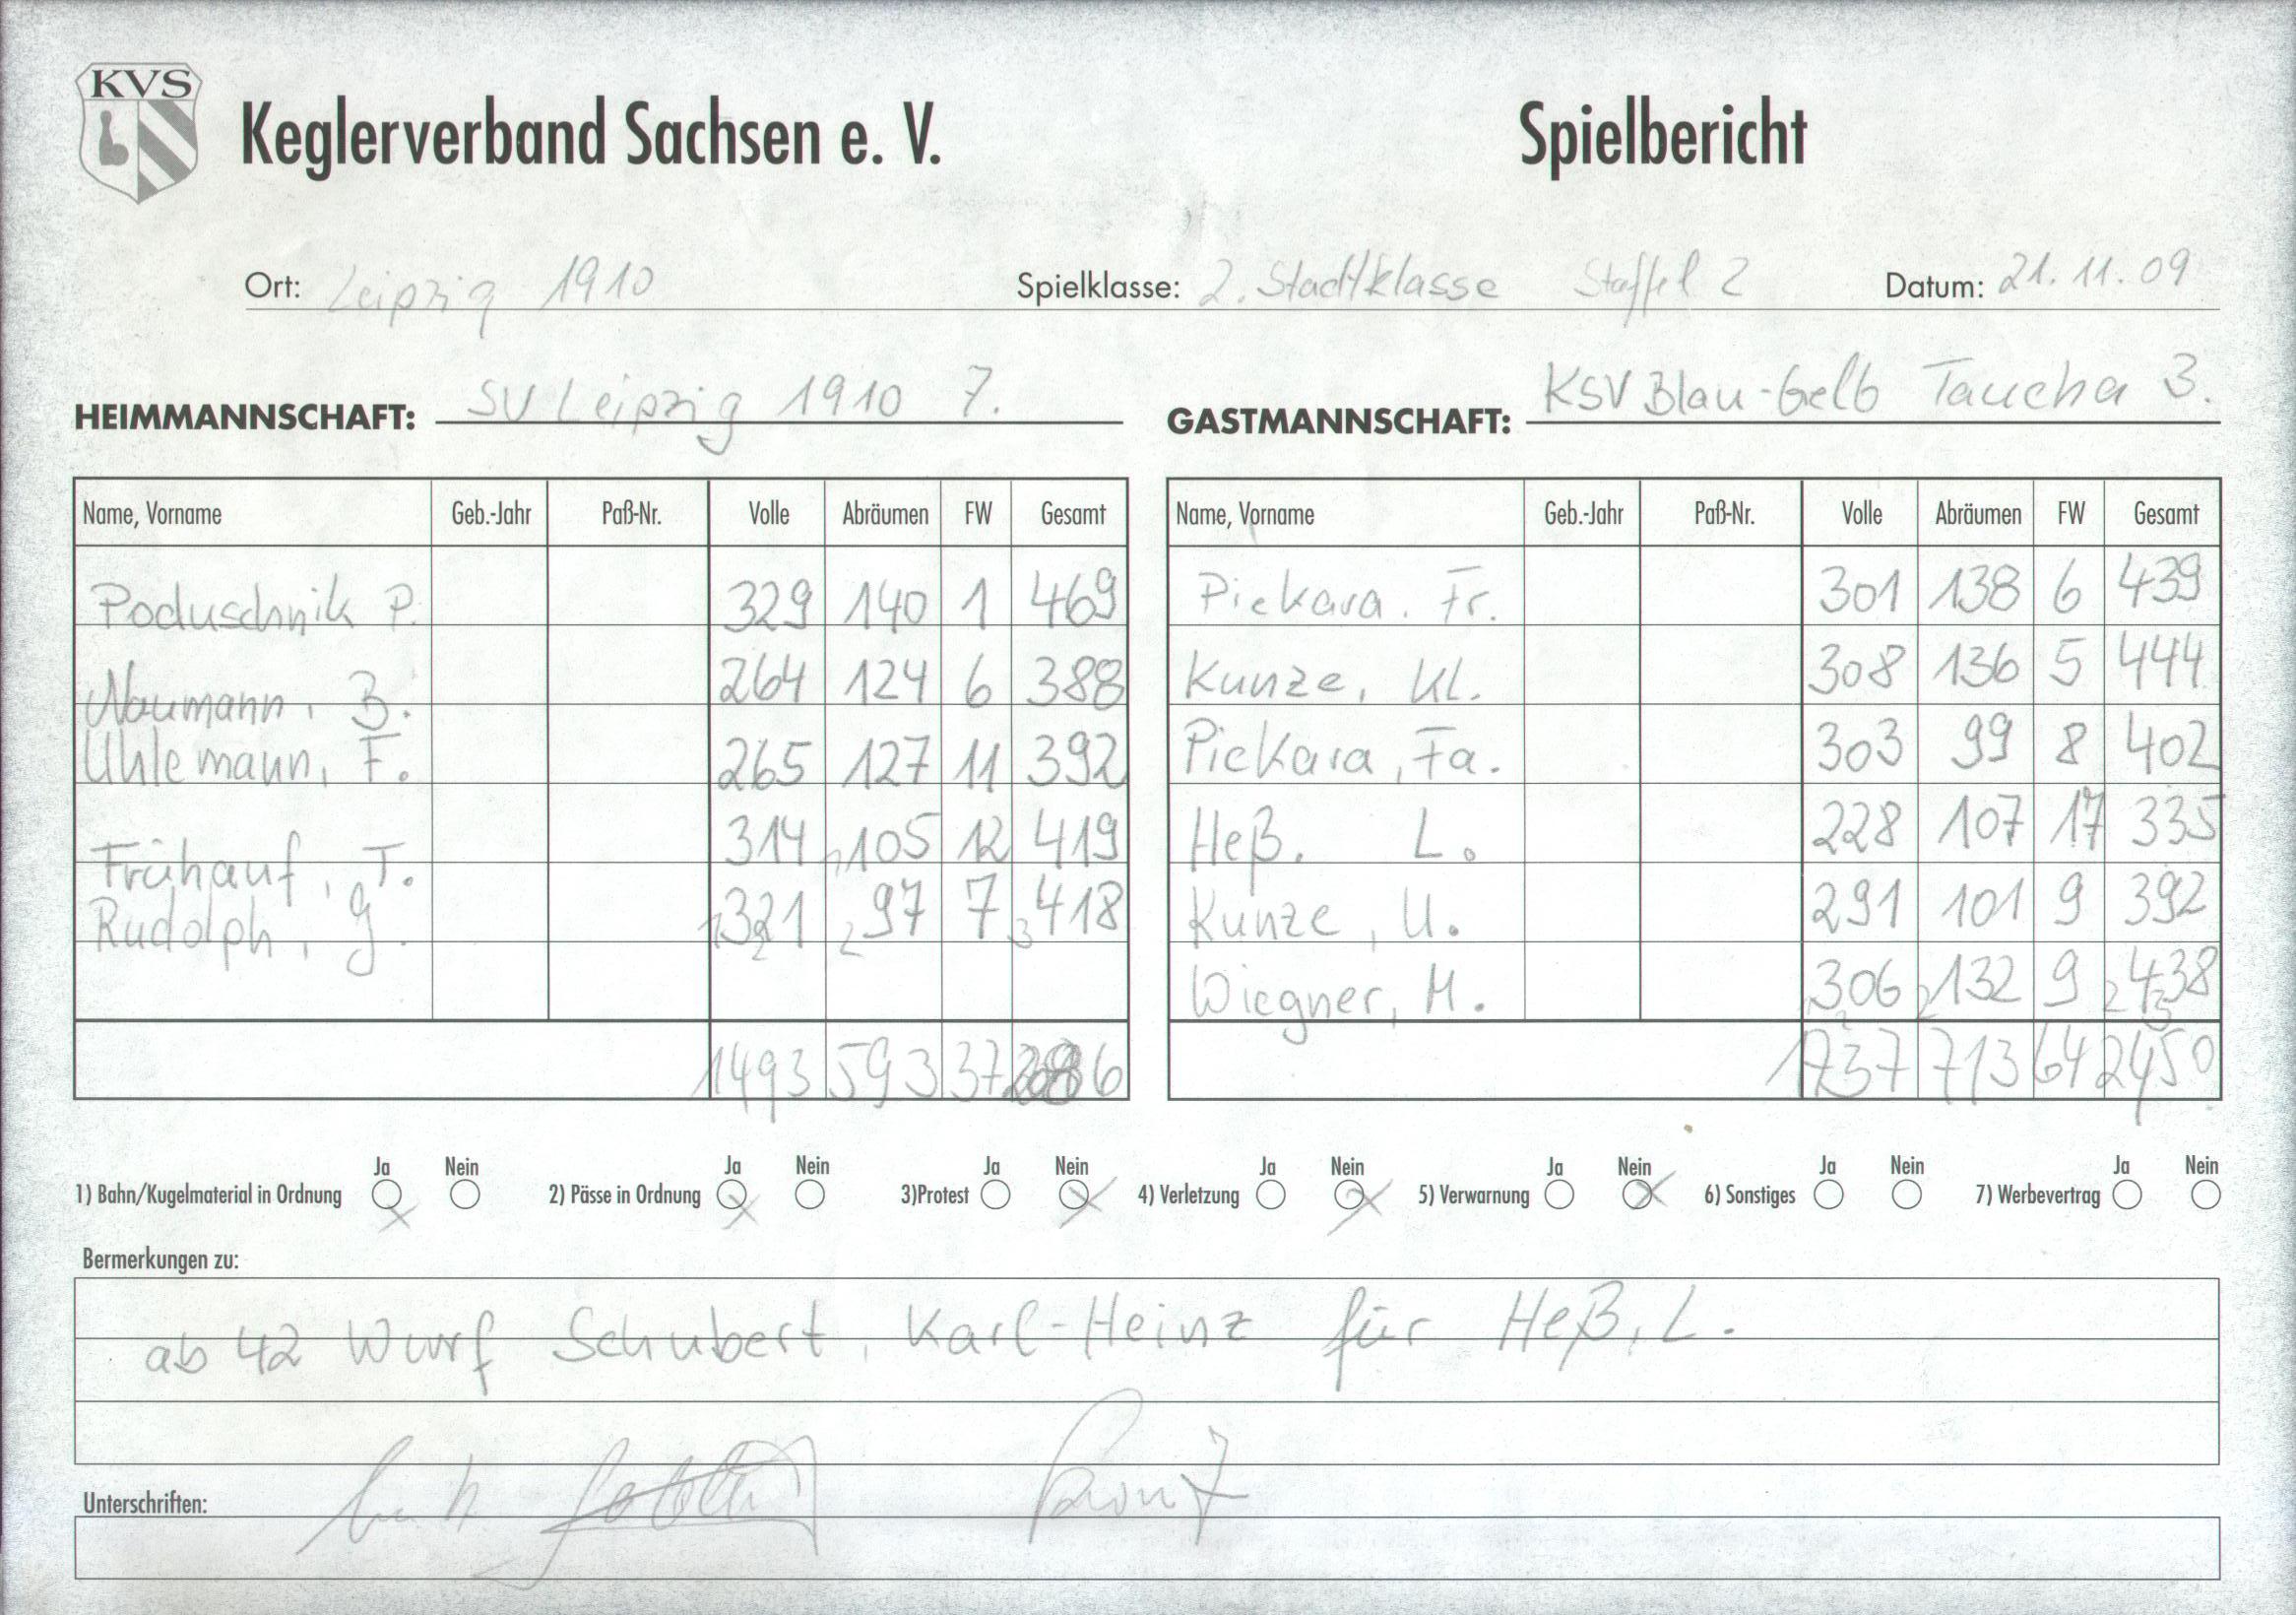 KVS
Keglerverband Sachsen e. V. Spielbericht
Ort: Leipzig 1910 Spielklasse: 2. Stadtklasse Staffel 2 Datum: 21.11.09
HEIMMANNSCHAFT: SV Leipzig 1910 7. GASTMANNSCHAFT: KSV Blau-Gelb Taucha 3.
Name, Vorname Geb.-Jahr Paß-Nr. Volle Abräumen FW Gesamt Name, Vorname Geb.-Jahr Paß-Nr. Volle Abräumen FW Gesamt
Poduschnik P. 329 140 1 469 Piekara. Fr. 301 138 6 439
Naumann, B. 264 124 6 388 Kunze, Kl. 308 136 5 444
Uhlemann, F. 265 127 11 392 Piekara, Fa. 303 99 8 402
Frühauf, T. 314 105 12 419 Heß. L. 228 107 17 335
Rudolph, g. 321 97 7 418 Kunze, U. 291 101 9 392
Wiegner, M. 306 132 9 438
1493 593 37 1737 713 64 2450
1) Bahn/Kugelmaterial in Ordnung Ja Nein 2) Pässe in Ordnung Ja Nein 3)Protest Ja Nein 4) Verletzung Ja Nein 5) Verwarnung Ja Nein 6) Sonstiges Ja Nein 7) Werbevertrag Ja Nein
Bermerkungen zu:
ab 42 Wurf Schubert, Karl-Heinz für Heß, L.
Unterschriften: